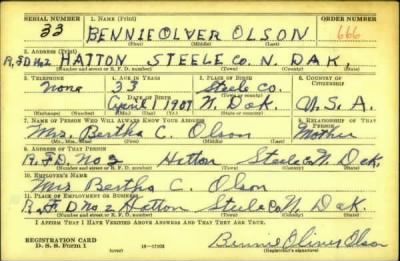 SERIAL NUMBER 1. NAME (Print) ORDER NUMBER
33 BENNIE OLVER OLSON 666
(First) (Middle) (Last)
2. ADDRESS (Print)
R.F.D No2 HATTON STEELE CO. N. DAK.
(Number and street or R. F. D. number) (Town) (County) (State)
3. TELEPHONE 4. AGE IN YEARS 5. PLACE OF BIRTH 6. COUNTRY OF CITIZENSHIP
None 33 Steele Co.
DATE OF BIRTH (Town or county)
April 1 1907 N. Dak. U.S.A.
7. NAME OF PERSON WHO WILL ALWAYS KNOW YOUR ADDRESS 8. RELATIONSHIP OF THAT PERSON
Mrs. Bertha C. Olson Mother
9. ADDRESS OF THAT PERSON
R.F.D. No 2 Hatton Steele Co N. Dak.
(Number and street or R. F. D. number) (Town) (County) (State)
10. EMPLOYER'S NAME
Mrs Bertha C. Olson
11. PLACE OF EMPLOYMENT OR BUSINESS
R.F.D No 2 Hatton Steele Co N. Dak.
(Number and street or R. F. D. number) (Town) (County) (State)
I AFFIRM THAT I HAVE VERIFIED ABOVE ANSWERS AND THAT THEY ARE TRUE.
REGISTRATION CARD
D. S. S. Form 1 Bennie Oliver Olson